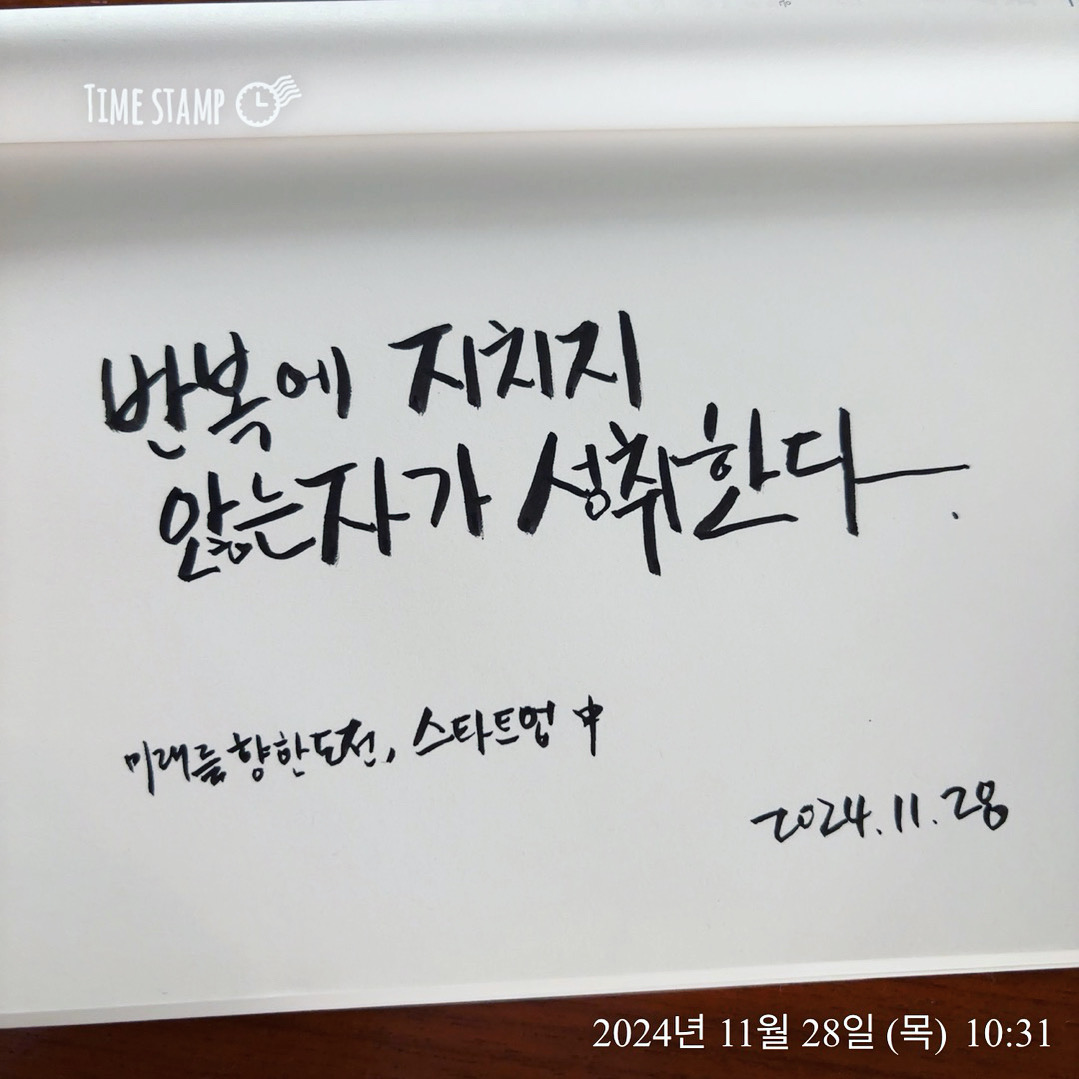 TIME STAMP
반복에 지치지
않는자가 성취한다.
미래를 향한도전, 스타트업 中
2024.11.28
2024년 11월 28일 (목) 10:31